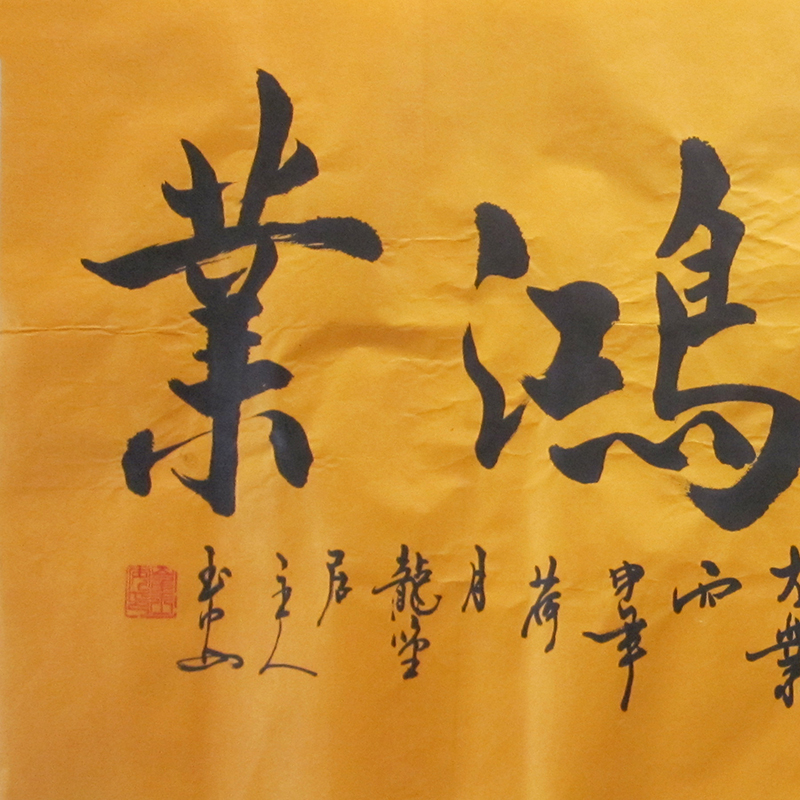 鴻業
大業
丙
申年
荷
月
龍
居
主人